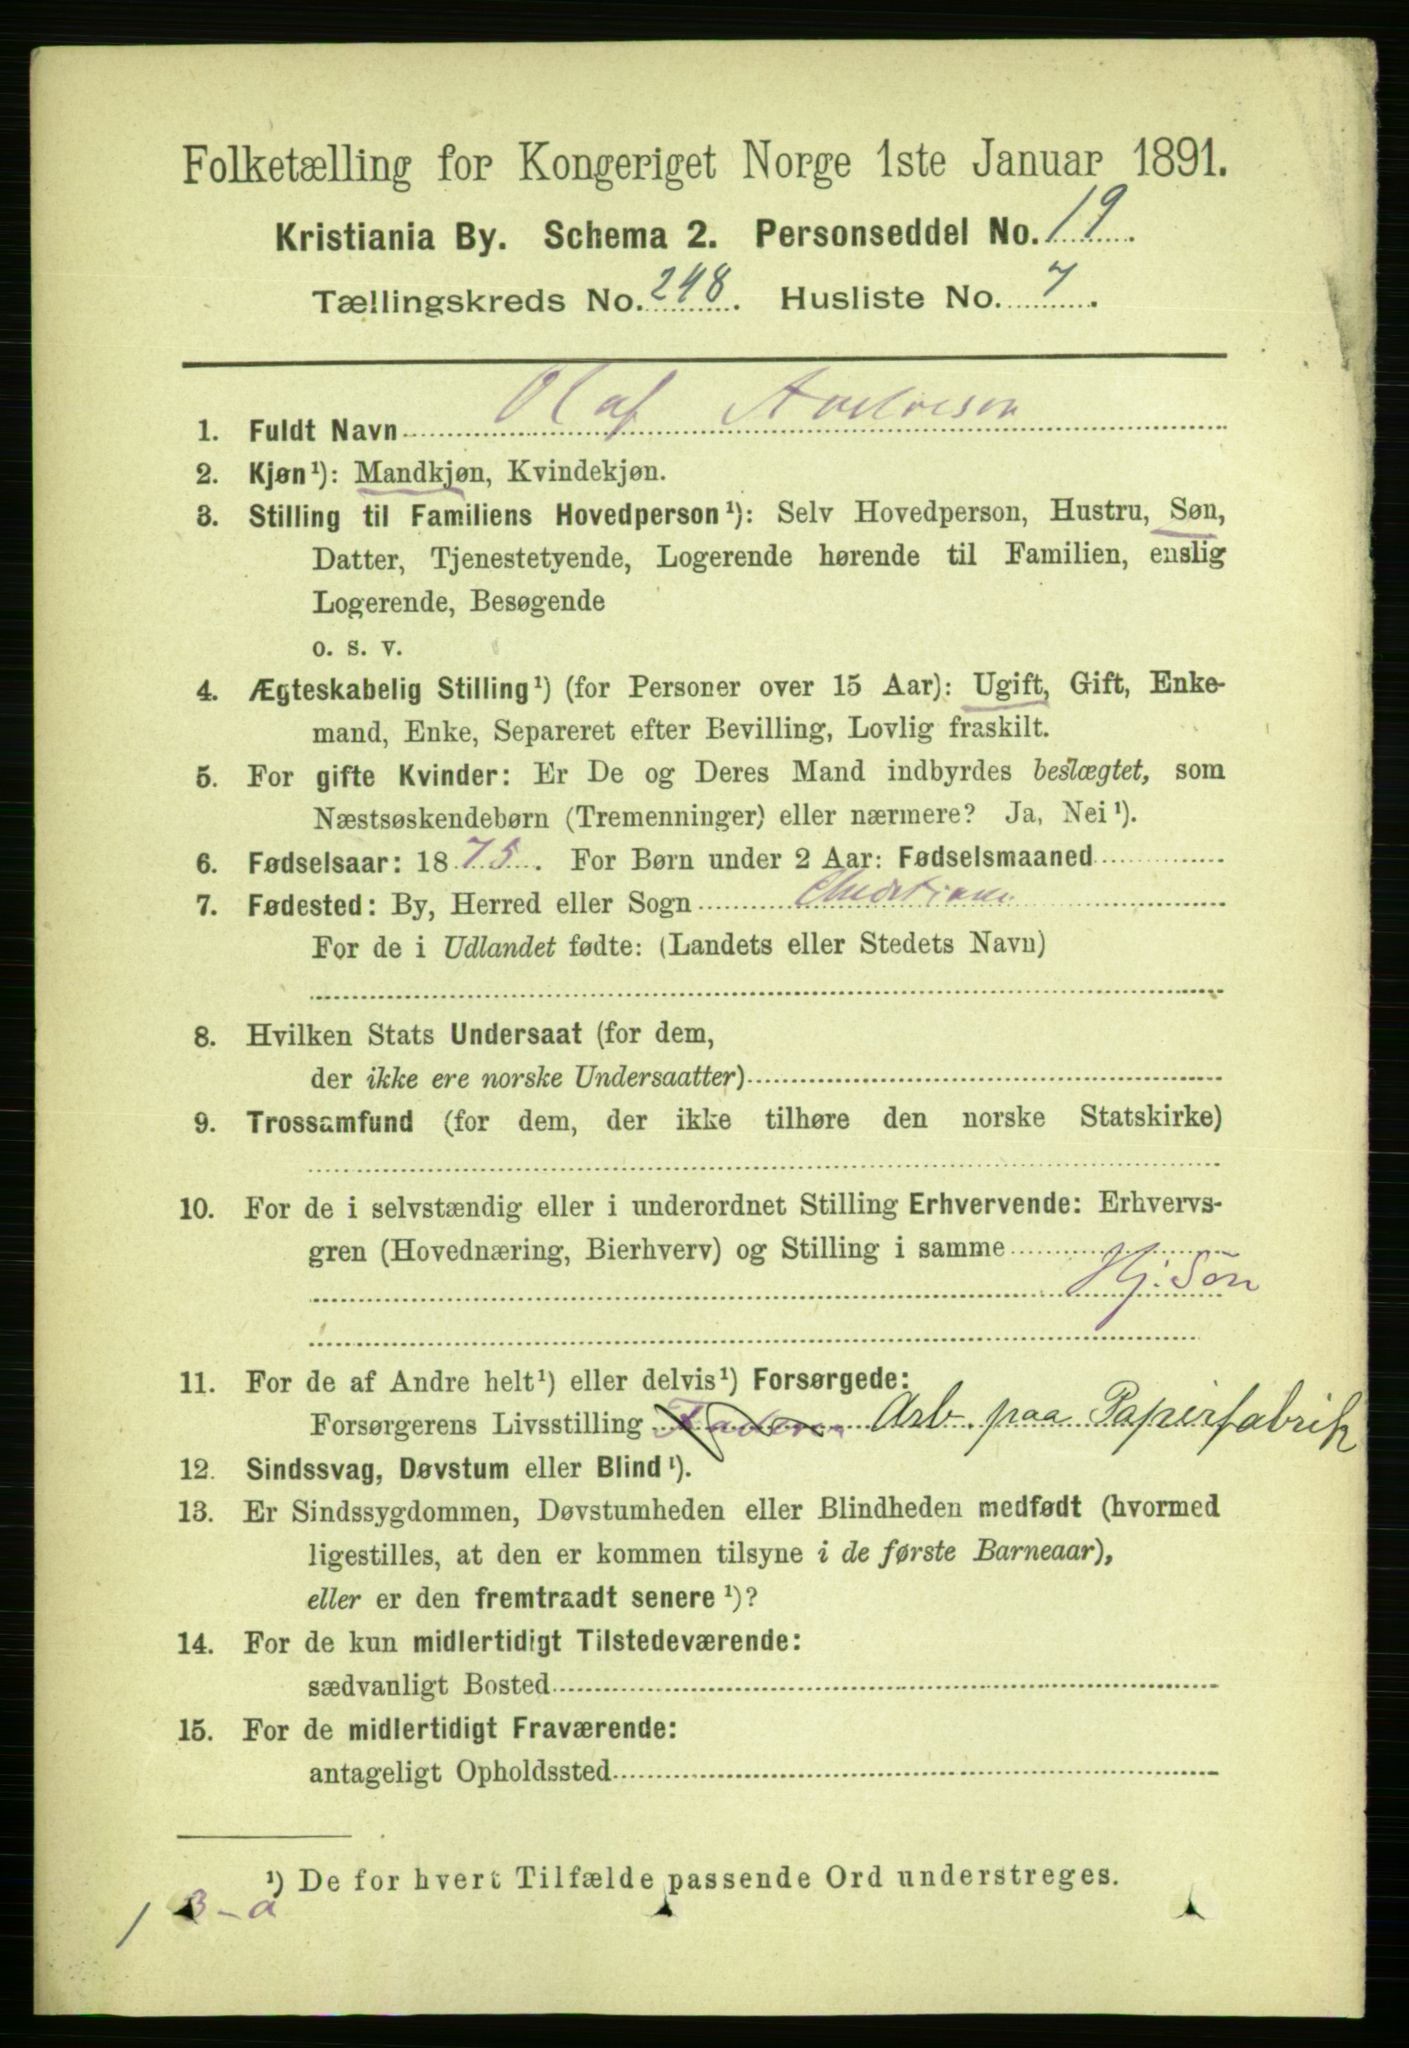 Folketælling for Kongeriget Norge 1ste Januar 1891.
Kristiania By. Schema 2. Personseddel No. 19.
Tællingskreds No. 248. Husliste No. 7.
1. Fuldt Navn Olaf
2. Kjøn¹): Mandkjøn, Kvindekjøn.
3. Stilling til Familiens Hovedperson¹): Selv Hovedperson, Hustru, Søn,
Datter, Tjenestetyende, Logerende hørende til Familien, enslig
Logerende, Besøgende
o. s. v.
4. Ægteskabelig Stilling¹) (for Personer over 15 Aar): Ugift, Gift, Enke-
mand, Enke, Separeret efter Bevilling, Lovlig fraskilt.
5. For gifte Kvinder: Er De og Deres Mand indbyrdes beslægtet, som
Næstsøskendebørn (Tremenninger) eller nærmere? Ja, Nei¹).
6. Fødselsaar: 1875. For Børn under 2 Aar: Fødselsmaaned
7. Fødested: By, Herred eller Sogn
For de i Udlandet fødte: (Landets eller Stedets Navn)
8. Hvilken Stats Undersaat (for dem,
der ikke ere norske Undersaatter)
9. Trossamfund (for dem, der ikke tilhøre den norske Statskirke)
10. For de i selvstændig eller i underordnet Stilling Erhvervende: Erhvervs-
gren (Hovednæring, Bierhverv) og Stilling i samme
Hj. Søn
11. For de af Andre helt¹) eller delvis¹) Forsørgede:
Forsørgerens Livsstilling Faderen Arb. paa Papirfabrik
12. Sindssvag, Døvstum eller Blind¹).
13. Er Sindssygdommen, Døvstumheden eller Blindheden medfødt (hvormed
ligestilles, at den er kommen tilsyne i de første Barneaar),
eller er den fremtraadt senere¹)?
14. For de kun midlertidigt Tilstedeværende:
sædvanligt Bosted
15. For de midlertidigt Fraværende:
antageligt Opholdssted
¹) De for hvert Tilfælde passende Ord understreges.